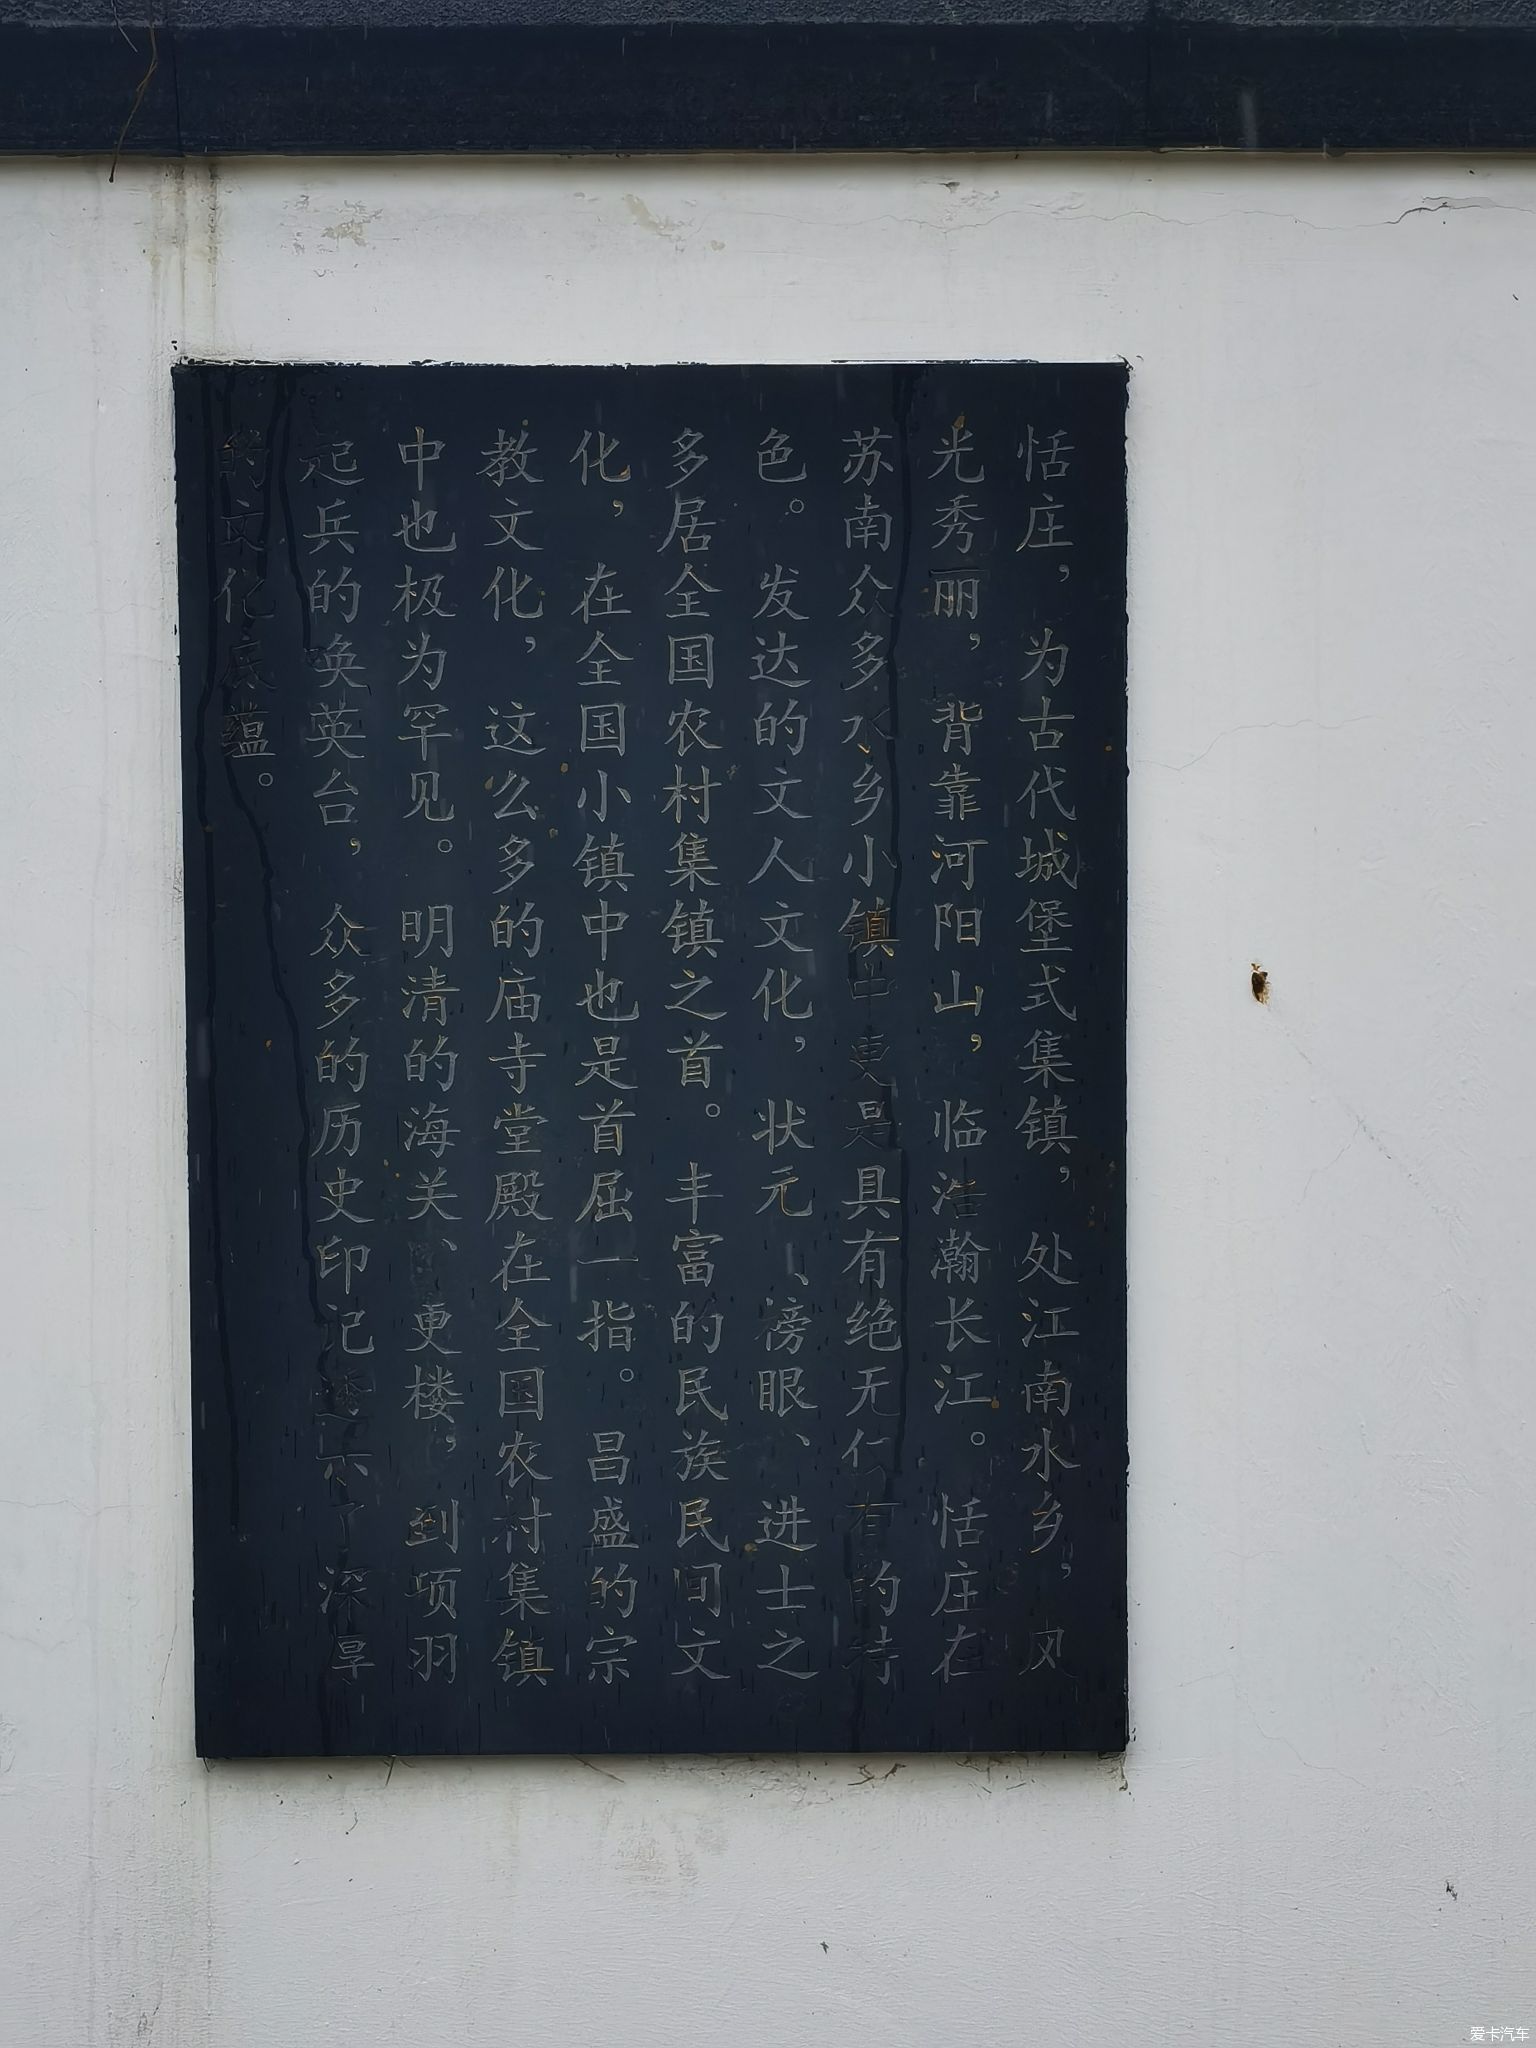 恬庄，为古代城堡式集镇，处江南水乡，风
光秀丽，背靠河阳山，临浩瀚长江。恬庄在
苏南众多水乡小镇中更是具有绝无仅有的特
色。发达的文人文化，状元、榜眼、进士之
多居全国农村集镇之首。丰富的民族民间文
化，在全国小镇中也是首屈一指。昌盛的宗
教文化，这么多的庙寺堂殿在全国农村集镇
中也极为罕见。明清的海关、更楼，到项羽
起兵的唤英台，众多的历史印记 了深厚
的文化底蕴。
爱卡汽车